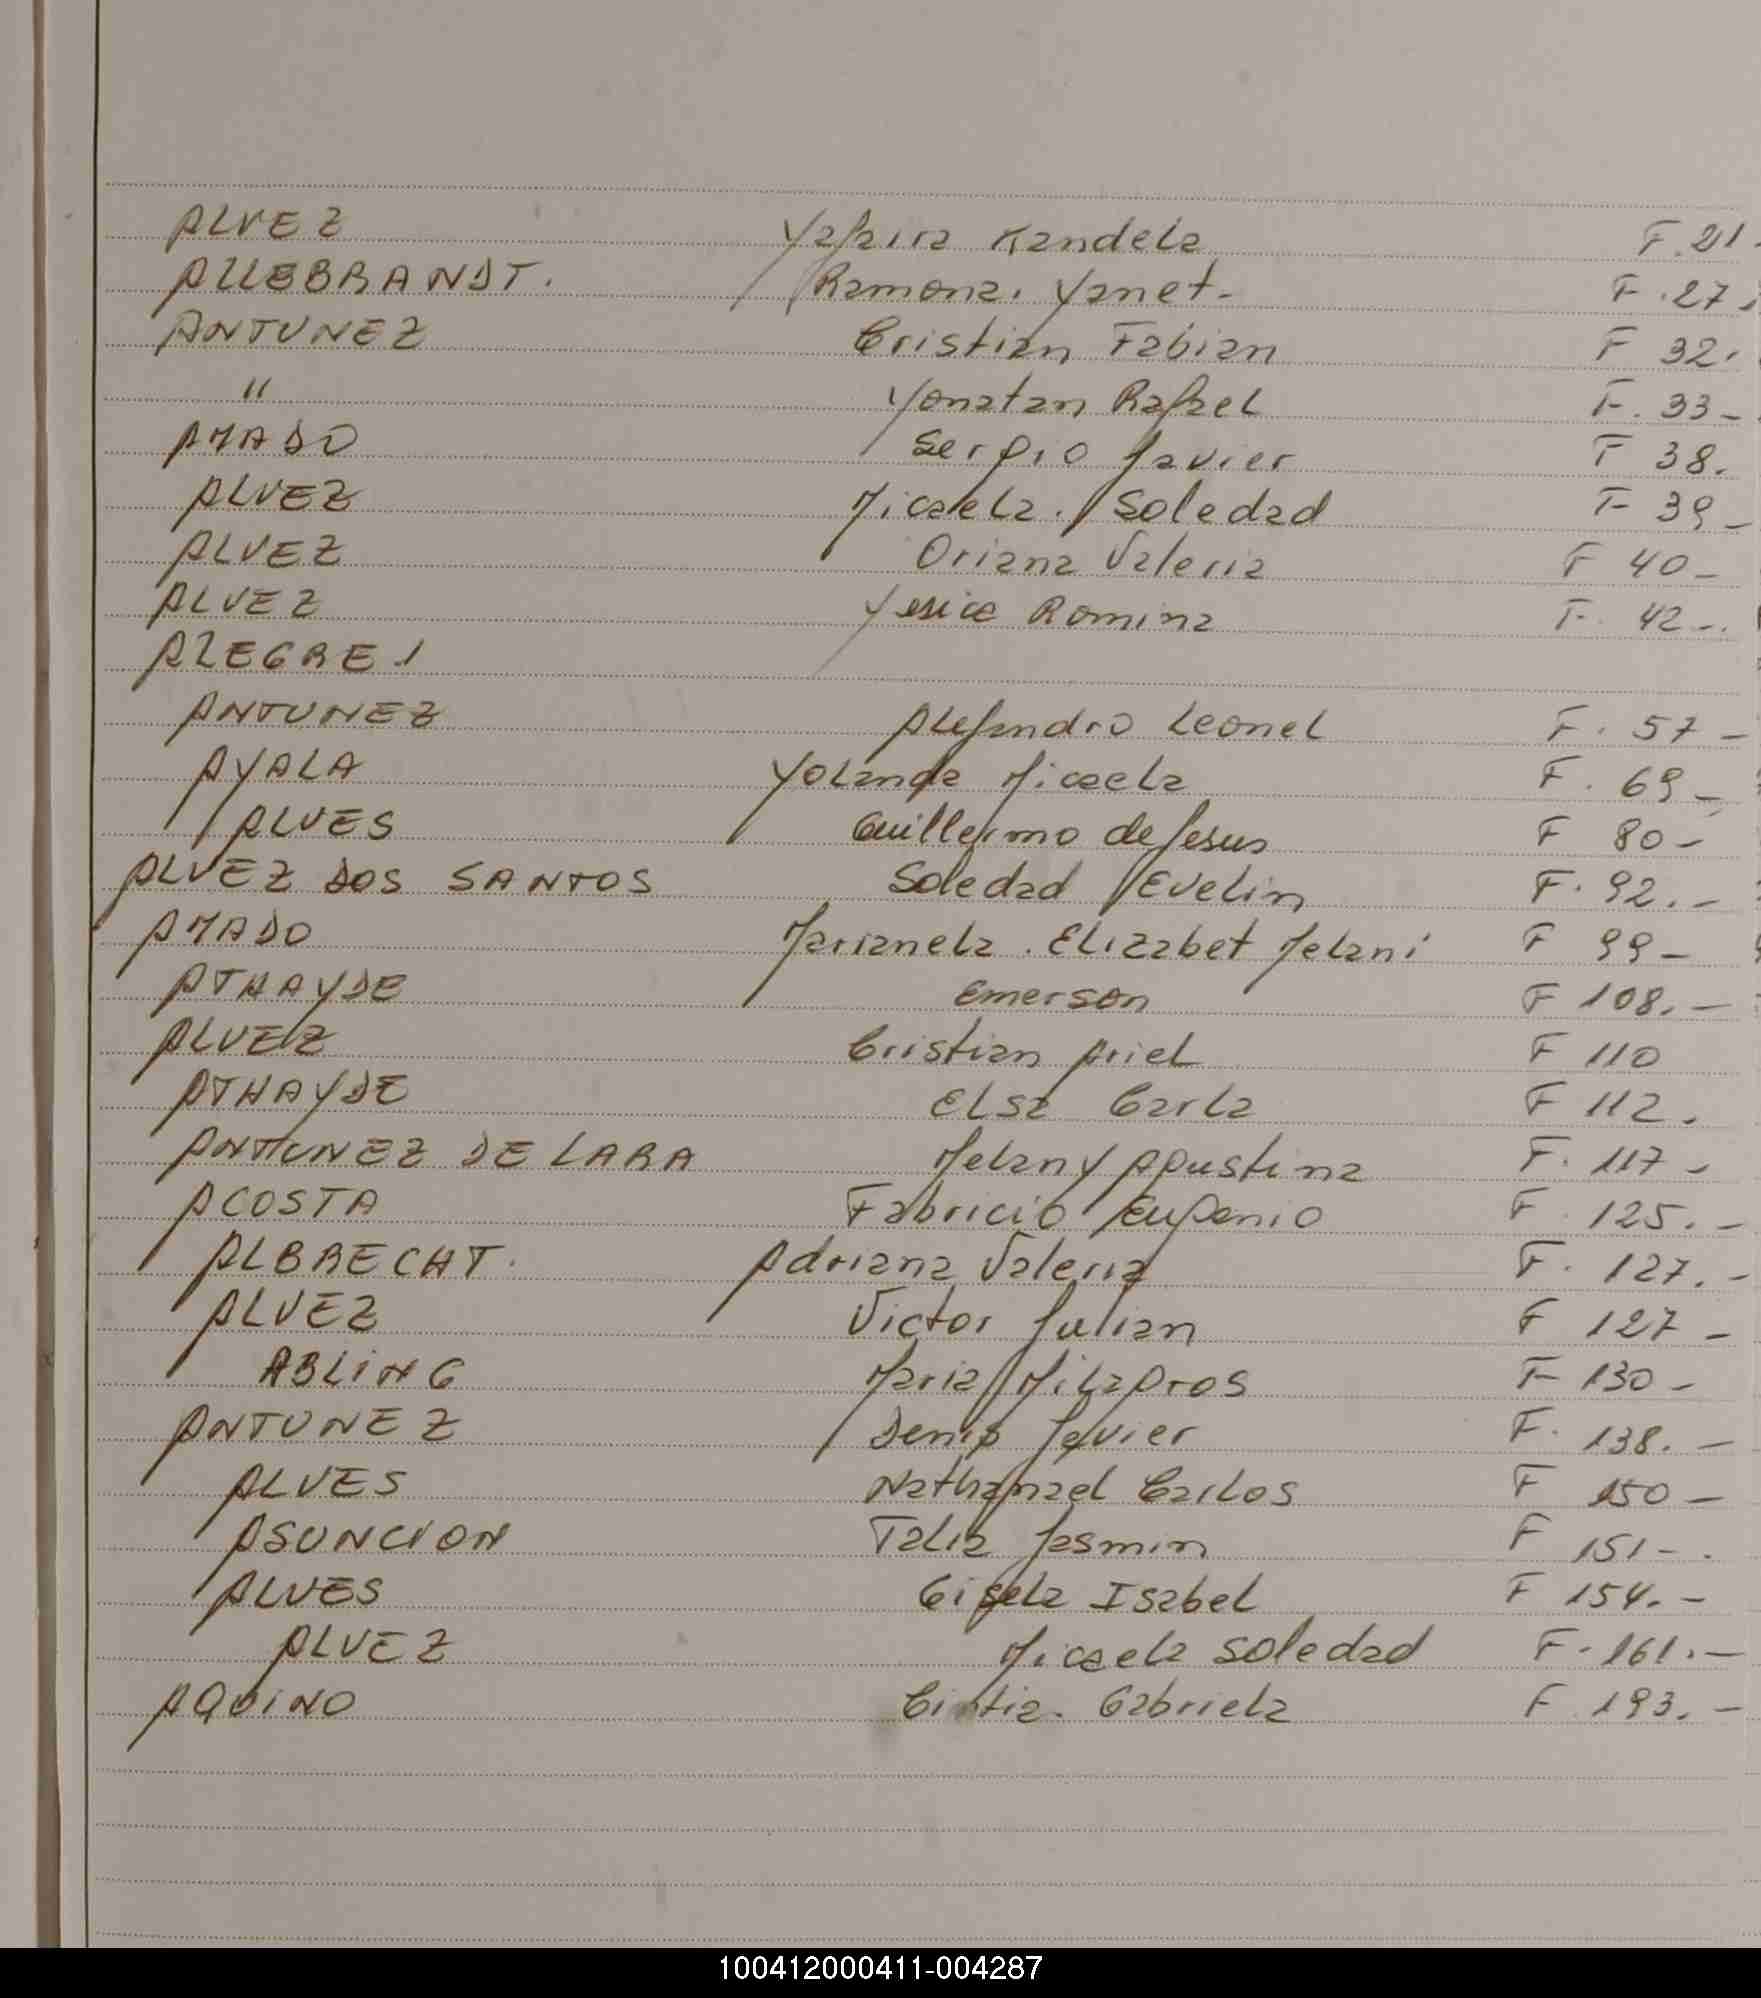 ALVEZ Yafaira Kandela F. 21-
ALLEBRANDT. Ramona. Yanet- F. 27.
ANTUNEZ Cristian Fabian F 32.
" Yonatan Rafael F. 33-
AMADO Sergio Javier F 38.
ALVEZ Micaela. Soledad F 39-
ALVEZ Oriana Valeria F 40-
ALVEZ Yesica Romina F. 42-.
ALEGRE
ANTUNEZ Alejandro Leonel F. 57-
AYALA Yolanda Micaela F. 69-
ALVES Guillermo de Jesus F 80-
ALVEZ DOS SANTOS Soledad Evelin F. 92.-
AMADO Marianela. Elizabet Melani F 99-
ATHAYDE Emerson F 108.-
ALVEZ Cristian Ariel F 110
ATHAYDE Elsa Carla F 112.
ANTUNEZ DE LARA Melany Agustina F. 117-
ACOSTA Fabricio Eugenio F. 125.-
ALBRECHT. Adriana Valeria F. 127.-
ALVEZ Victor Julian F 127-
ABLING Maria Milagros F 130-
ANTUNEZ Denis Javier F. 138.-
ALVES Nathanael Carlos F 150-
ASUNCION Talia Jasmin F 151-.
ALVES Gisela Isabel F 154.-
ALVEZ Micaela Soledad F. 161.-
AQUINO Cintia. Gabriela F. 193.-
100412000411-004287